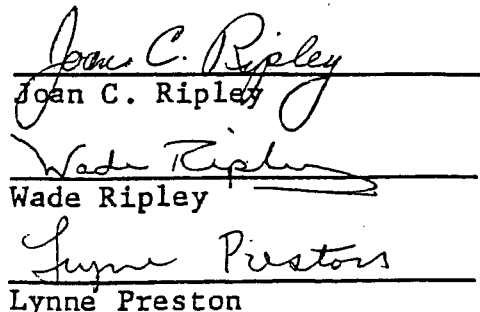 Joan C. Ripley
Joan C. Ripley
Wade Ripley
Wade Ripley
Lynne Preston
Lynne Preston